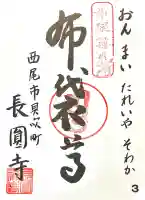 おん まい たれいや そわか
3
布袋尊
西尾市貝吹町
長圓寺